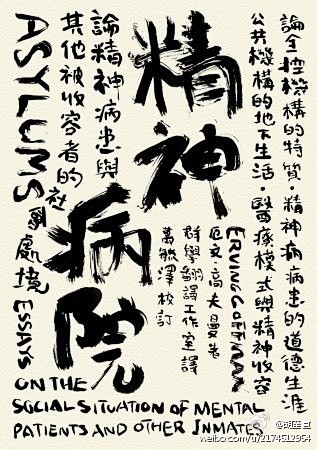 論全控機構的特質・精神病病患的道德生涯
公共機構的地下生活・醫療模式與精神收容
精神
病院
ERVING GOFFMAN
厄文・高夫曼著
群學翻譯工作室譯
萬毓澤校訂
論精神病患與
其他被收容者的
社會處境
ASYLUMS
ESSAYS
ON THE
SOCIAL SITUATION OF MENTAL
PATIENTS AND OTHER INMATES
weibo.com/u/2174512954